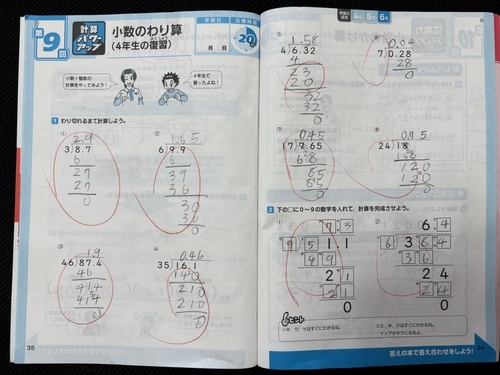 第9回
計算パワーアップ
小数のわり算
(4年生の復習)
月 日
20
小数÷整数の
計算をやってみよう!
4年生で
習ったよね!
1 わり切れるまで計算しよう。
①
2.9
3)8.7
6
27
27
0
②
1.65
6)9.9
6
39
36
30
30
0
③
1.9
46)87.4
46
414
414
0
④
0.46
35)16.1
140
210
210
0
35
4月 5月 6月
⑤
1.58
4)6.32
4
23
20
32
32
0
⑥
0.04
7)0.28
28
0
⑦
0.45
17)7.65
68
85
85
0
⑧
0.75
24)18
168
120
120
0
2 下の□に0~9の数字を入れて、計算を完成させよう。
①
7.3
7)511
49
21
21
0
②
6.4
6)36.4
36
24
24
0
ヒント
答えの本で答え合わせをしよう!